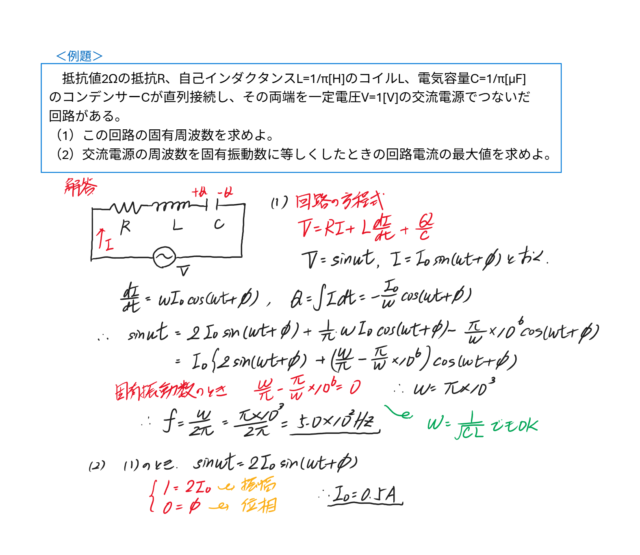 ＜例題＞
抵抗値2Ωの抵抗R、自己インダクタンスL=1/π[H]のコイルL、電気容量C=1/π[μF]
のコンデンサーCが直列接続し、その両端を一定電圧V=1[V]の交流電源でつないだ
回路がある。
（1）この回路の固有周波数を求めよ。
（2）交流電源の周波数を固有振動数に等しくしたときの回路電流の最大値を求めよ。
解答
+Q -Q
R L C
I
V
(1) 回路の方程式
V = RI + L dI/dt + Q/C
V = sinωt, I = I₀ sin(ωt+φ) とおく.
dI/dt = ωI₀ cos(ωt+φ) , Q = ∫Idt = - I₀/ω cos(ωt+φ)
∴ sinωt = 2I₀ sin(ωt+φ) + 1/π ωI₀ cos(ωt+φ) - π/ω ×10⁶ cos(ωt+φ)
= I₀{2sin(ωt+φ) + (ω/π - π/ω ×10⁶) cos(ωt+φ)
固有振動数のとき ω/π - π/ω ×10⁶ = 0 ∴ ω = π×10³
∴ f = ω/2π = π×10³/2π = 5.0×10²Hz
ω = 1/√CL でもOK
(2) (1)のとき. sinωt = 2I₀ sin(ωt+φ)
1 = 2I₀ 振幅
0 = φ 位相
∴ I₀ = 0.5A